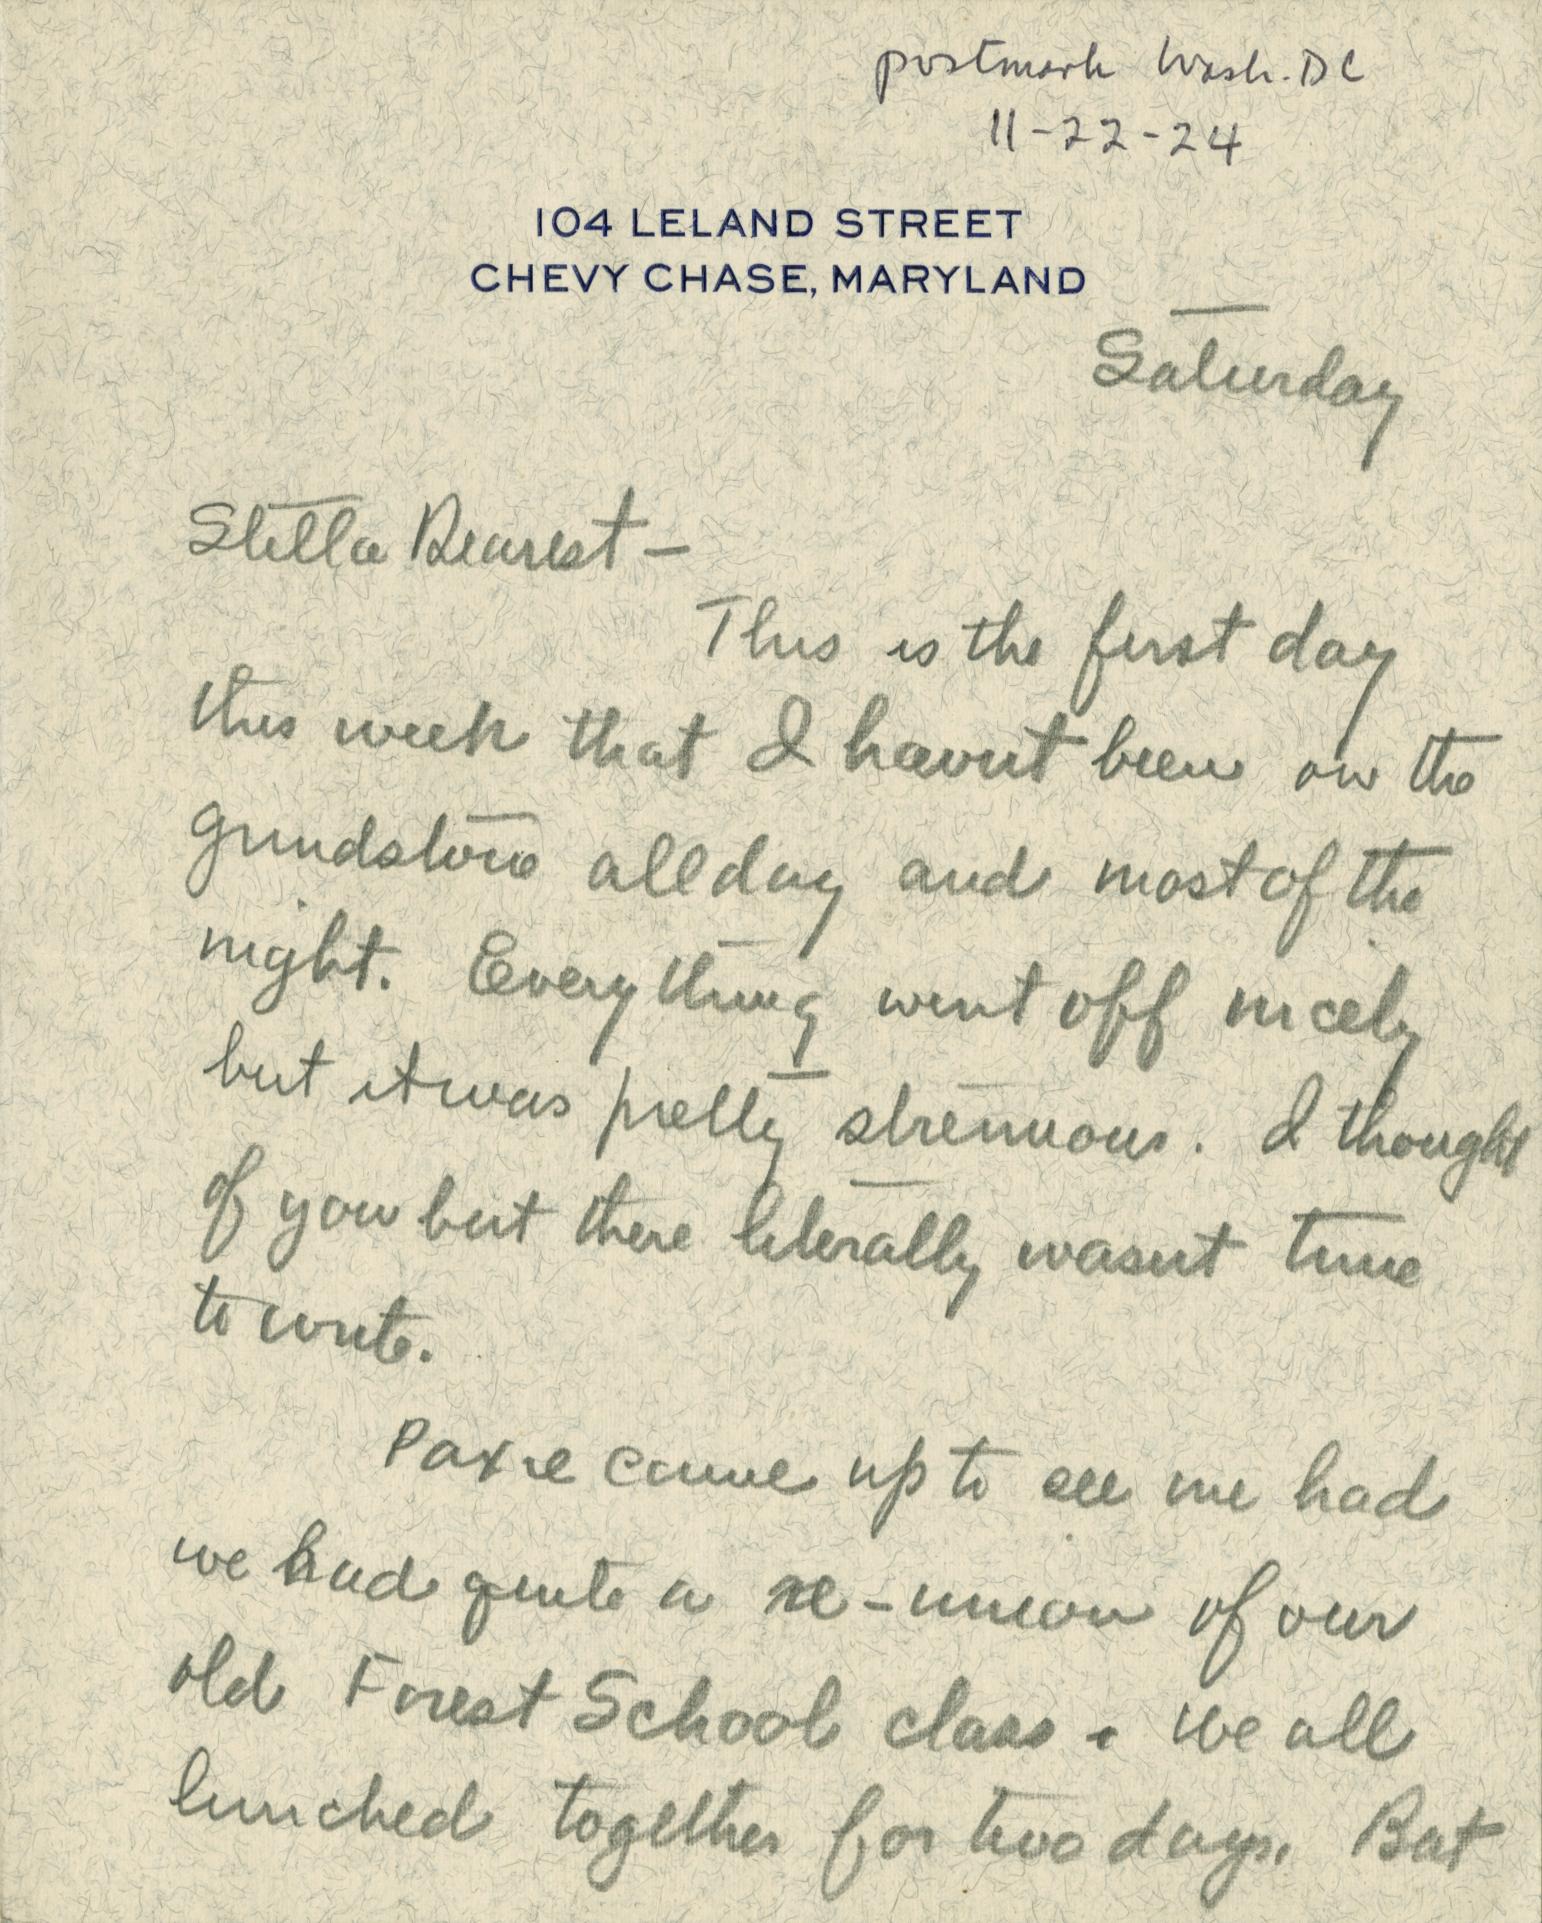 postmark Wash. DC
11-22-24
104 LELAND STREET
CHEVY CHASE, MARYLAND
Saturday
Stella Dearest –
This is the first day
this week that I havn't been on the
grindstone all day and most of the
night. Everything went off nicely
but it was pretty strenuous. I thought
of you but there literally wasnt time
to write.
Paxie came up to see me had
we had quite a re-union of our
old Forest School class. We all
lunched together for two days. Bat